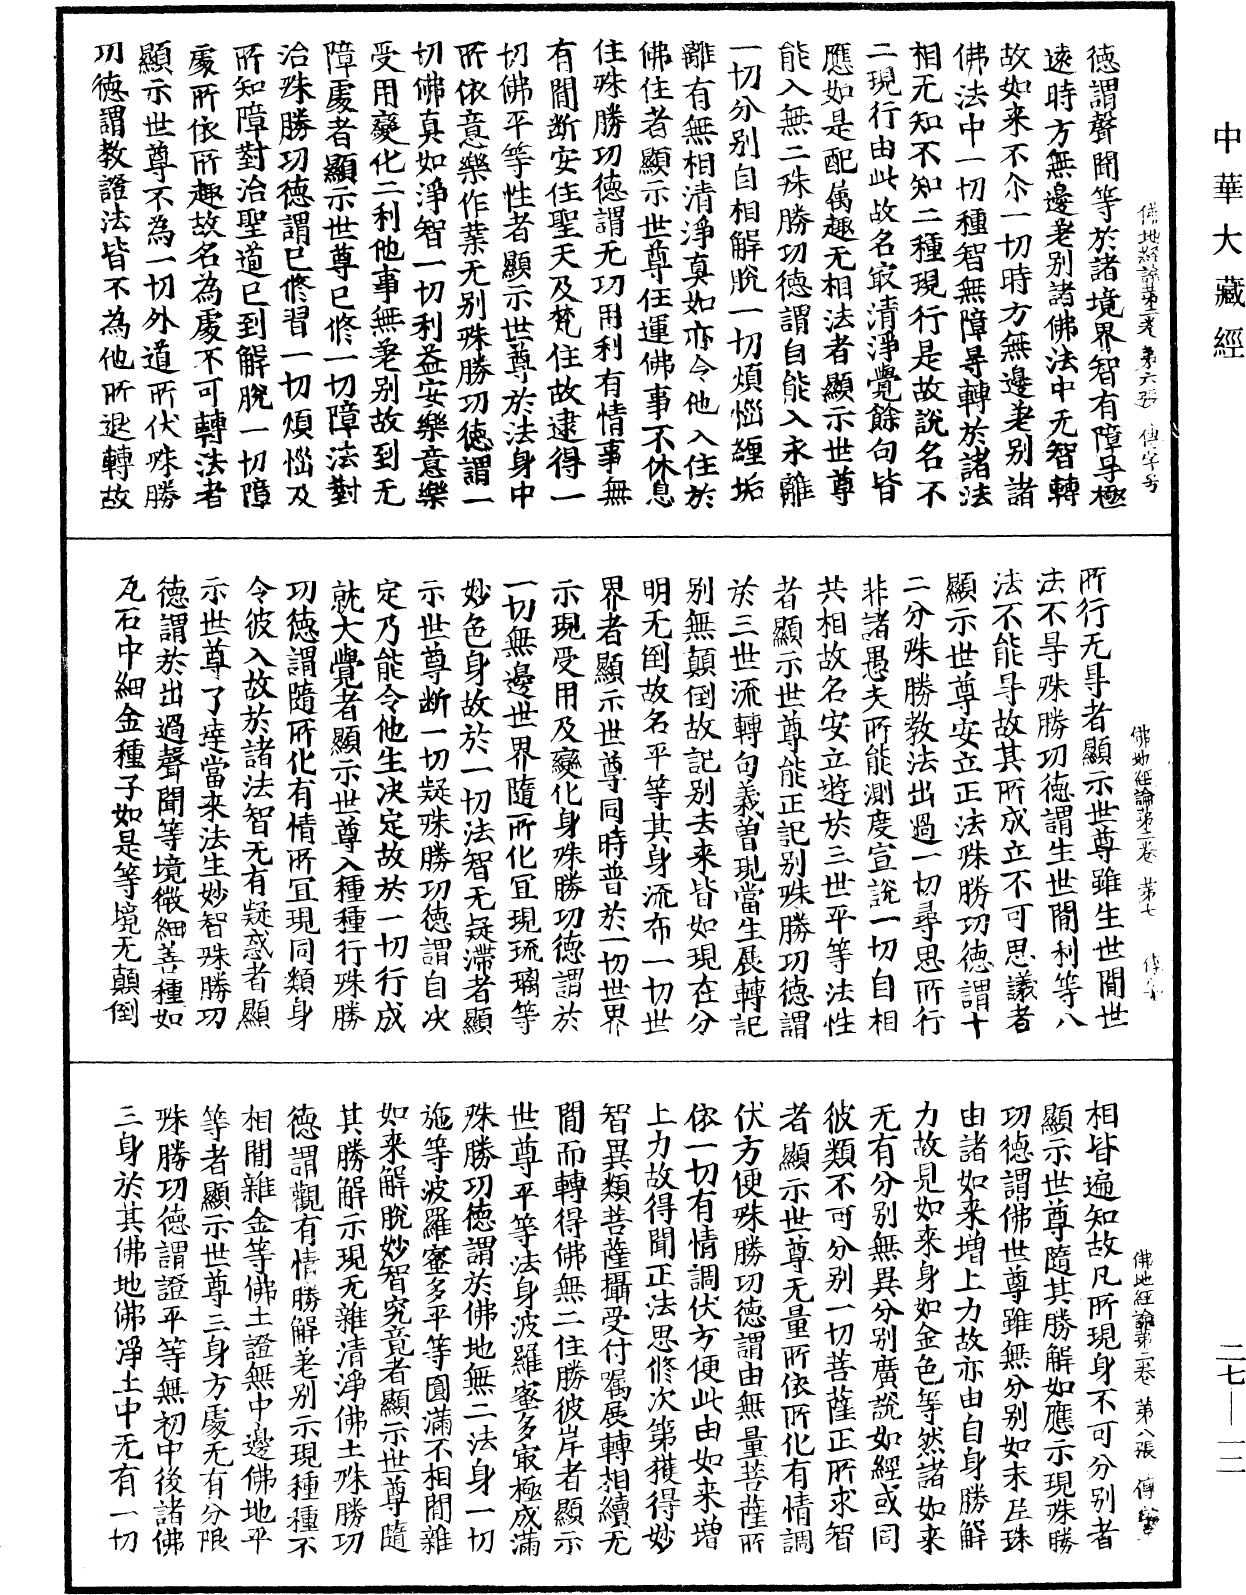 中華大藏經
佛地經論第二卷 第六張 傳字号
德謂聲聞等於諸境界智有障导極
遠時方無邊差别諸佛法中无智轉
故如来不尒一切時方無邊差别諸
佛法中一切種智無障导轉於諸法
相无知不知二種現行是故說名不
二現行由此故名㝡清淨覺餘句皆
應如是配属趣无相法者顯示世尊
能入無二殊勝功德謂自能入永離
一切分别自相解脫一切煩惱纏垢
離有無相清淨真如亦令他入住於
佛住者顯示世尊任運佛事不休息
住殊勝功德謂无功用利有情事無
有間断安住聖天及梵住故逮得一
切佛平等性者顯示世尊於法身中
所依意樂作業无别殊勝功德謂一
切佛真如淨智一切利益安樂意樂
受用變化二利他事無差别故到无
障處者顯示世尊已修一切障法對
治殊勝功德謂已修習一切煩惱及
所知障對治聖道已到解脫一切障
處所依所趣故名為處不可轉法者
顯示世尊不為一切外道所伏殊勝
功德謂教證法皆不為他所退轉故
佛地經論第二卷 第七 傳字
所行无导者顯示世尊雖生世間世
法不导殊勝功德謂生世間利等八
法不能导故其所成立不可思議者
顯示世尊安立正法殊勝功德謂十
二分殊勝教法出過一切尋思所行
非諸愚夫所能測度宣說一切自相
共相故名安立遊於三世平等法性
者顯示世尊能正記别殊勝功德謂
於三世流轉句義曾現當生展轉記
别無顛倒故記别去来皆如現在分
明无倒故名平等其身流布一切世
界者顯示世尊同時普於一切世界
示現受用及變化身殊勝功德謂於
一切無邊世界隨所化宜現琉璃等
妙色身故於一切法智无疑滯者顯
示世尊断一切疑殊勝功德謂自决
定乃能令他生决定故於一切行成
就大覺者顯示世尊入種種行殊勝
功德謂隨所化有情所宜現同類身
令彼入故於諸法智无有疑惑者顯
示世尊了達當来法生妙智殊勝功
德謂於出過聲聞等境微細善種如
瓦石中細金種子如是等境无顛倒
佛地經論第二卷 第八張 傳字号
相皆遍知故凡所現身不可分别者
顯示世尊隨其勝解如應示現殊勝
功德謂佛世尊雖無分别如末尼珠
由諸如来増上力故亦由自身勝解
力故見如来身如金色等然諸如来
无有分别無異分别廣說如經或同
彼類不可分别一切菩薩正所求智
者顯示世尊无量所依所化有情調
伏方便殊勝功德謂由無量菩薩所
依一切有情調伏方便此由如来増
上力故得聞正法思修次第獲得妙
智異類菩薩攝受付囑展轉相續无
間而轉得佛無二住勝彼岸者顯示
世尊平等法身波羅蜜多㝡極成滿
殊勝功德謂於佛地無二法身一切
施等波羅蜜多平等圓滿不相間雜
如来解脫妙智究竟者顯示世尊隨
其勝解示現无雜清淨佛土殊勝功
德謂觀有情勝解差别示現種種不
相間雜金等佛土證無中邊佛地平
等者顯示世尊三身方處无有分限
殊勝功德謂證平等無初中後諸佛
三身於其佛地佛淨土中无有一切
二七—一二